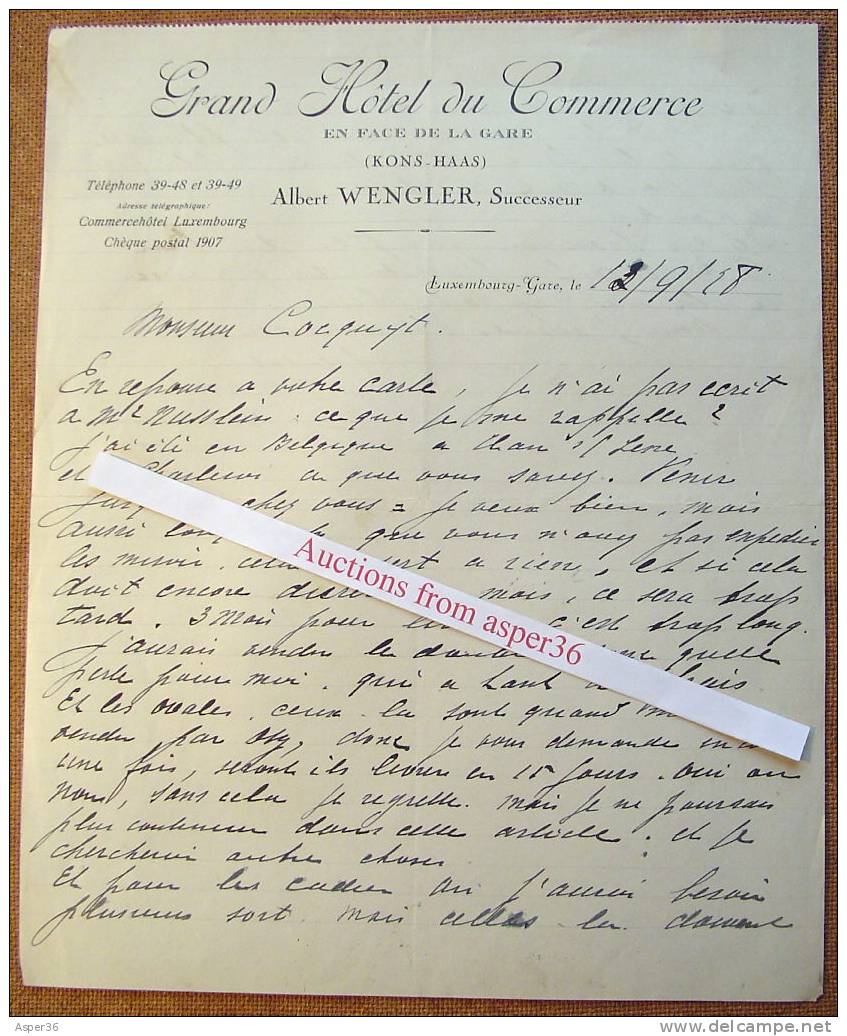 Grand Hôtel du Commerce
EN FACE DE LA GARE
(KONS-HAAS)
Albert WENGLER, Successeur
Téléphone 39-48 et 39-49
Adresse télégraphique:
Commercehôtel Luxembourg
Chèque postal 1907
Luxembourg-Gare, le 13/9/28
Monsieur Cocquyt.
En reponse a votre carte, je n'ai pas ecrit
a Mr Nusslein ce que je me rappelle?
j'ai été en Belgique a
et Charleroi a que vous savez. Venir
chez vous = je veux bien, mais
aussi que vous n'avez pas expedier
les miroir, a rien, et si cela
doit encore mois, ce sera trop
tard. 3 Mois pour c'est trop long.
j'aurais vendu le quelle
perte pour moi. qui a tant
Et les ovales, ceux-la sont quand
vendu par donc je vous demande
une fois, seront ils livrer en 15 jours. oui ou
Non, sans cela je regrette. mais je ne pourrais
plus continuer dans cette article. et je
chercherai autre choses
Et pour les cadres j'aurai besoin
plusieurs sort. Mais celles la doivent
Auctions from asper36
Asper36
www.delcampe.net